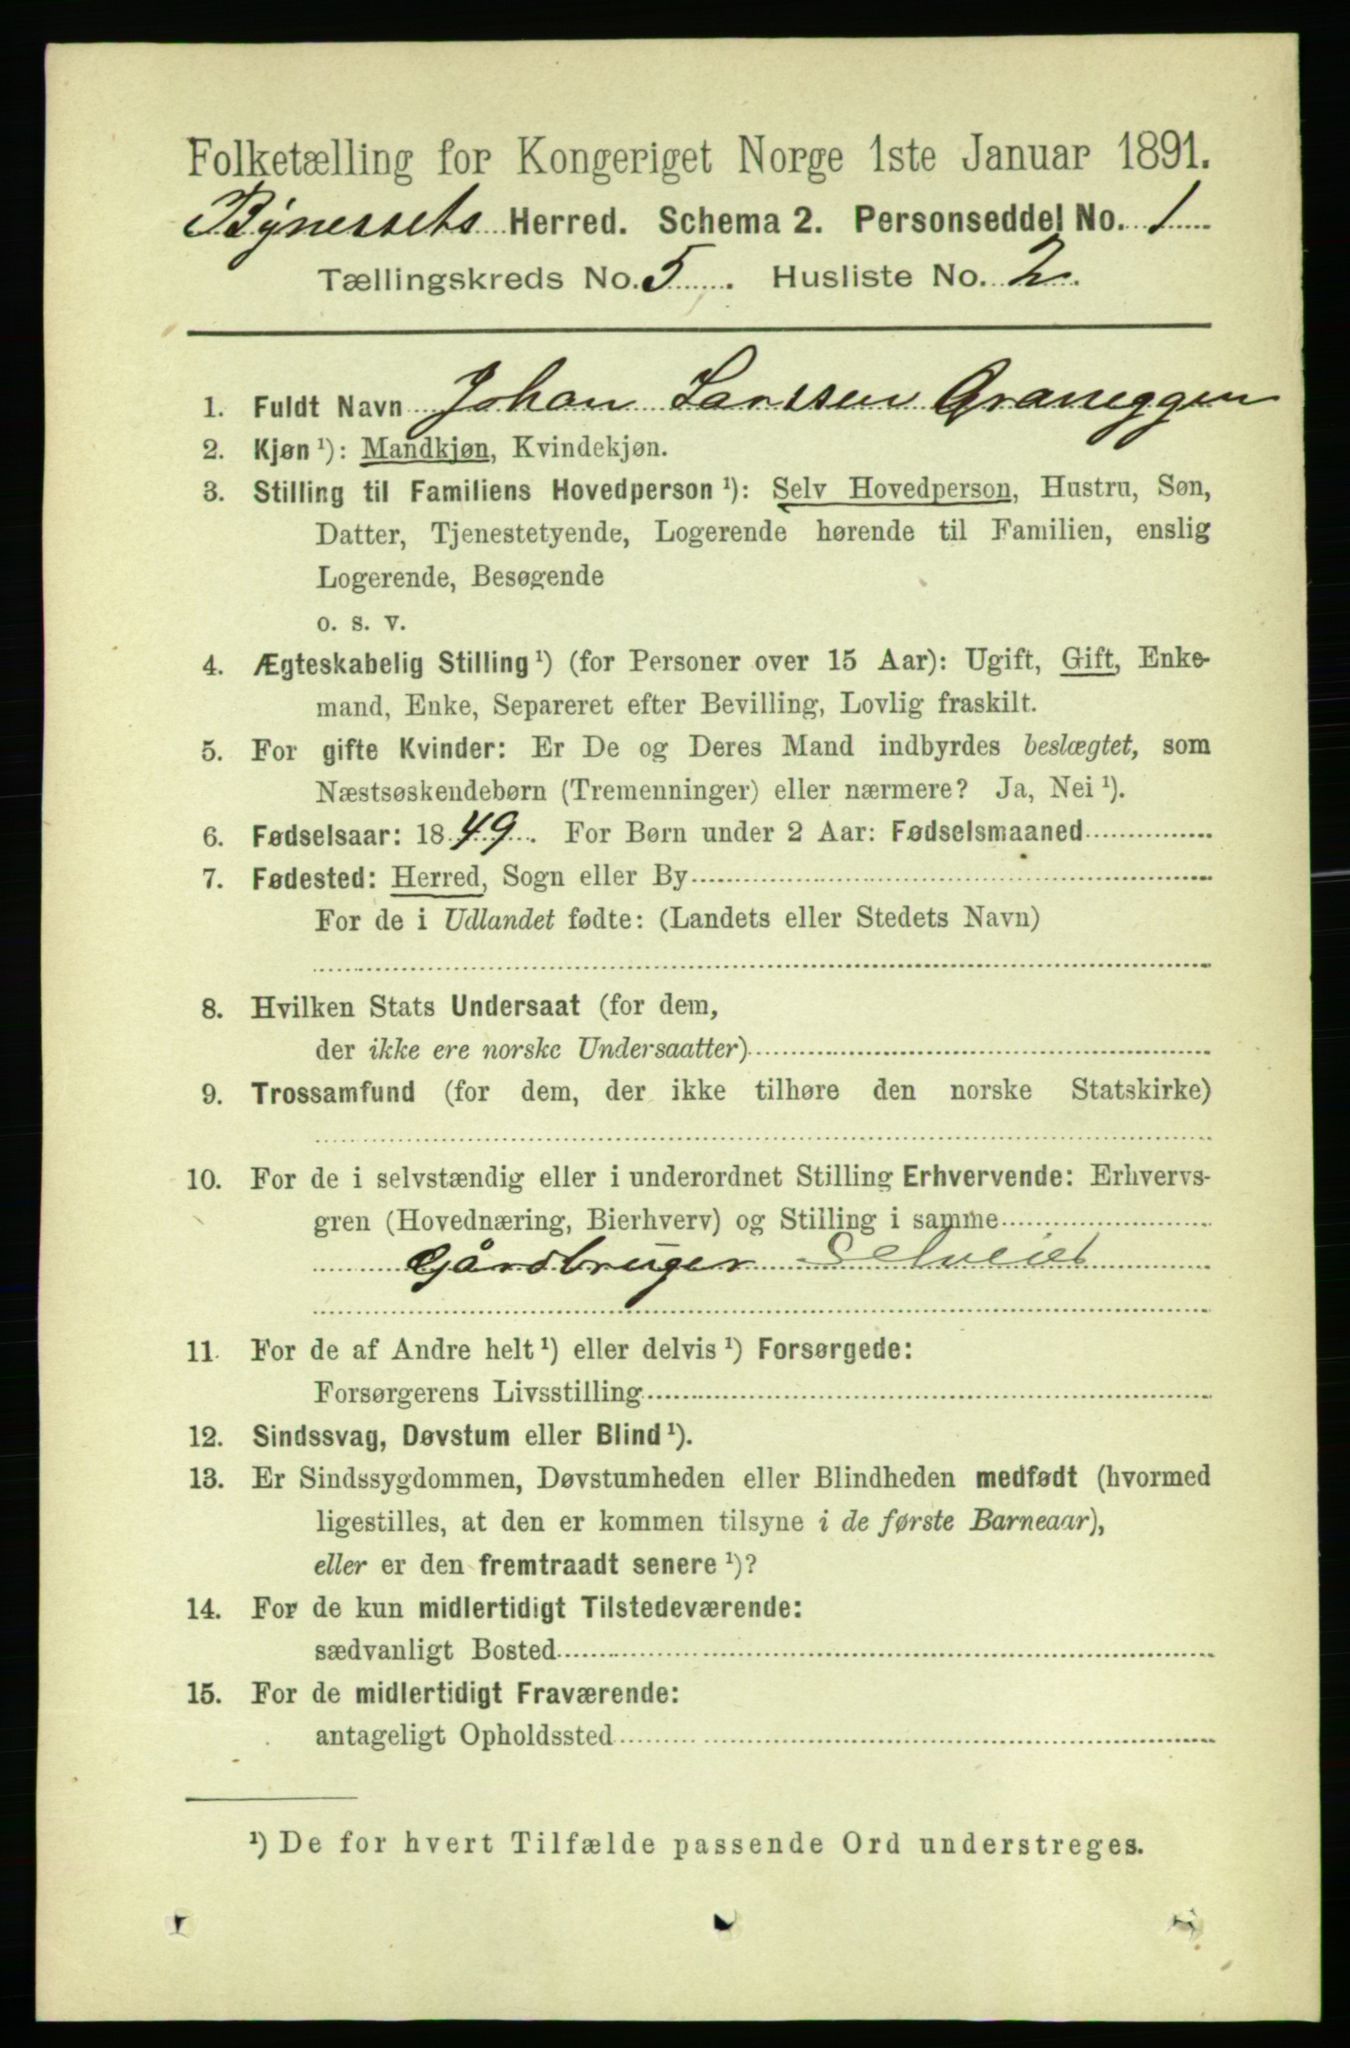 Folketælling for Kongeriget Norge 1ste Januar 1891.
Bynessets Herred. Schema 2. Personseddel No. 1
Tællingskreds No. 5. Husliste No. 2.
1. Fuldt Navn Johan Larssen Graneggen
2. Kjøn ¹): Mandkjøn, Kvindekjøn.
3. Stilling til Familiens Hovedperson ¹): Selv Hovedperson, Hustru, Søn,
Datter, Tjenestetyende, Logerende hørende til Familien, enslig
Logerende, Besøgende
o. s. v.
4. Ægteskabelig Stilling ¹) (for Personer over 15 Aar): Ugift, Gift, Enke-
mand, Enke, Separeret efter Bevilling, Lovlig fraskilt.
5. For gifte Kvinder: Er De og Deres Mand indbyrdes beslægtet, som
Næstsøskendebørn (Tremenninger) eller nærmere? Ja, Nei ¹).
6. Fødselsaar: 1849. For Børn under 2 Aar: Fødselsmaaned
7. Fødested: Herred, Sogn eller By
For de i Udlandet fødte: (Landets eller Stedets Navn)
8. Hvilken Stats Undersaat (for dem,
der ikke ere norske Undersaatter)
9. Trossamfund (for dem, der ikke tilhøre den norske Statskirke)
10. For de i selvstændig eller i underordnet Stilling Erhvervende: Erhvervs-
gren (Hovednæring, Bierhverv) og Stilling i samme
Gårdbruger Selveier
11. For de af Andre helt ¹) eller delvis ¹) Forsørgede:
Forsørgerens Livsstilling
12. Sindssvag, Døvstum eller Blind ¹).
13. Er Sindssygdommen, Døvstumheden eller Blindheden medfødt (hvormed
ligestilles, at den er kommen tilsyne i de første Barneaar),
eller er den fremtraadt senere ¹)?
14. For de kun midlertidigt Tilstedeværende:
sædvanligt Bosted
15. For de midlertidigt Fraværende:
antageligt Opholdssted
¹) De for hvert Tilfælde passende Ord understreges.